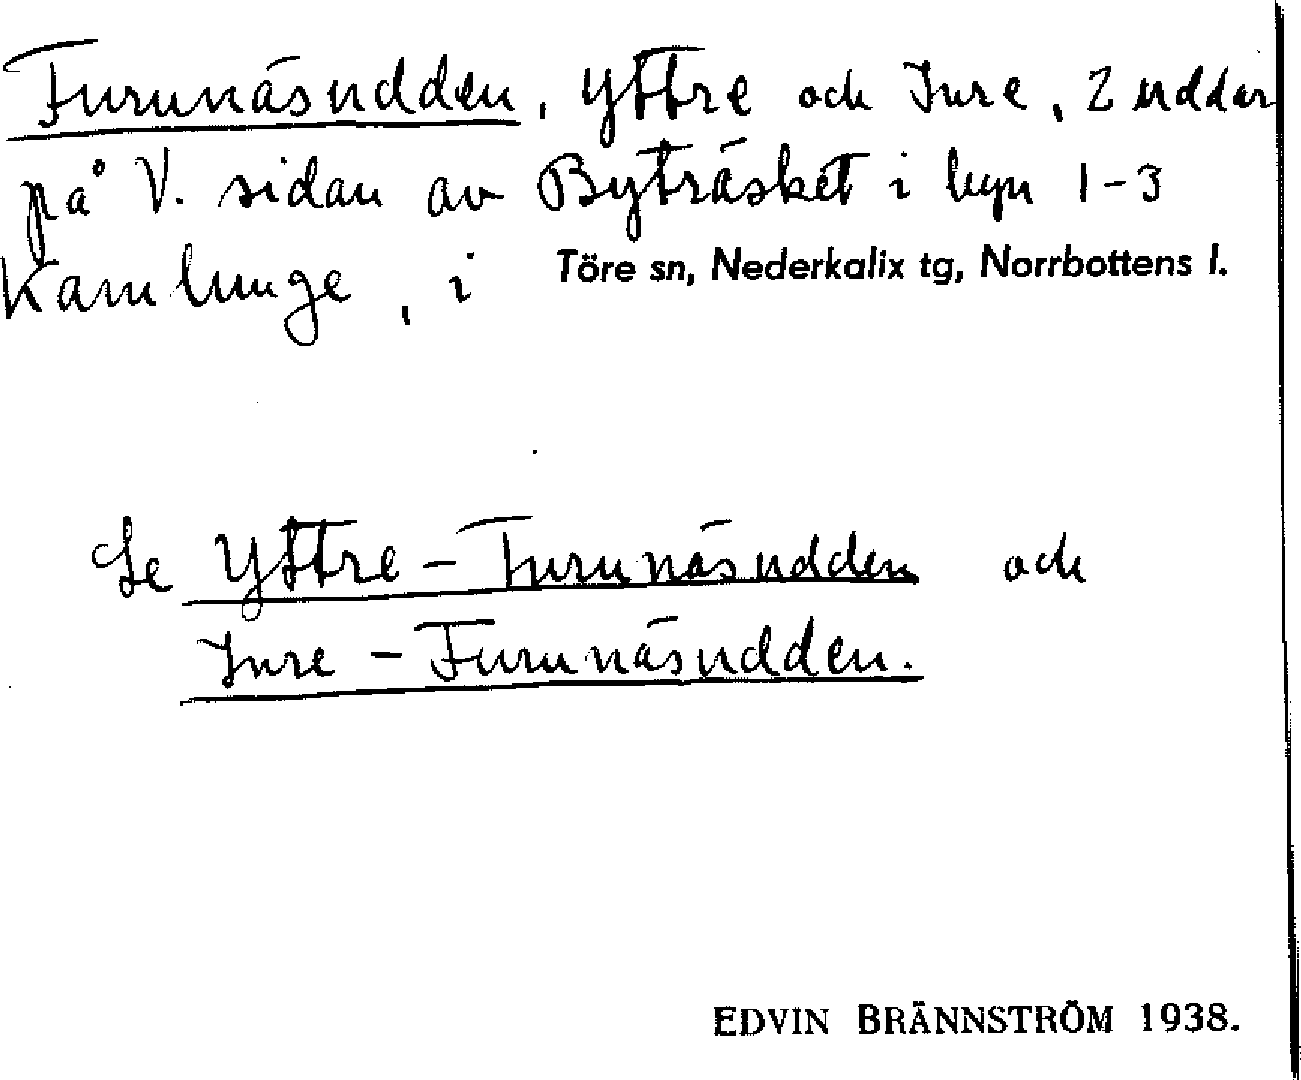 Furunäsudden, Yttre och Inre, 2 uddar
på V. sidan av Byträsket i byn 1-3
Kamlunge, i Töre sn, Nederkalix tg, Norrbottens l.
Se Yttre-Furunäsudden och
Inre-Furunäsudden.
EDVIN BRÄNNSTRÖM 1938.